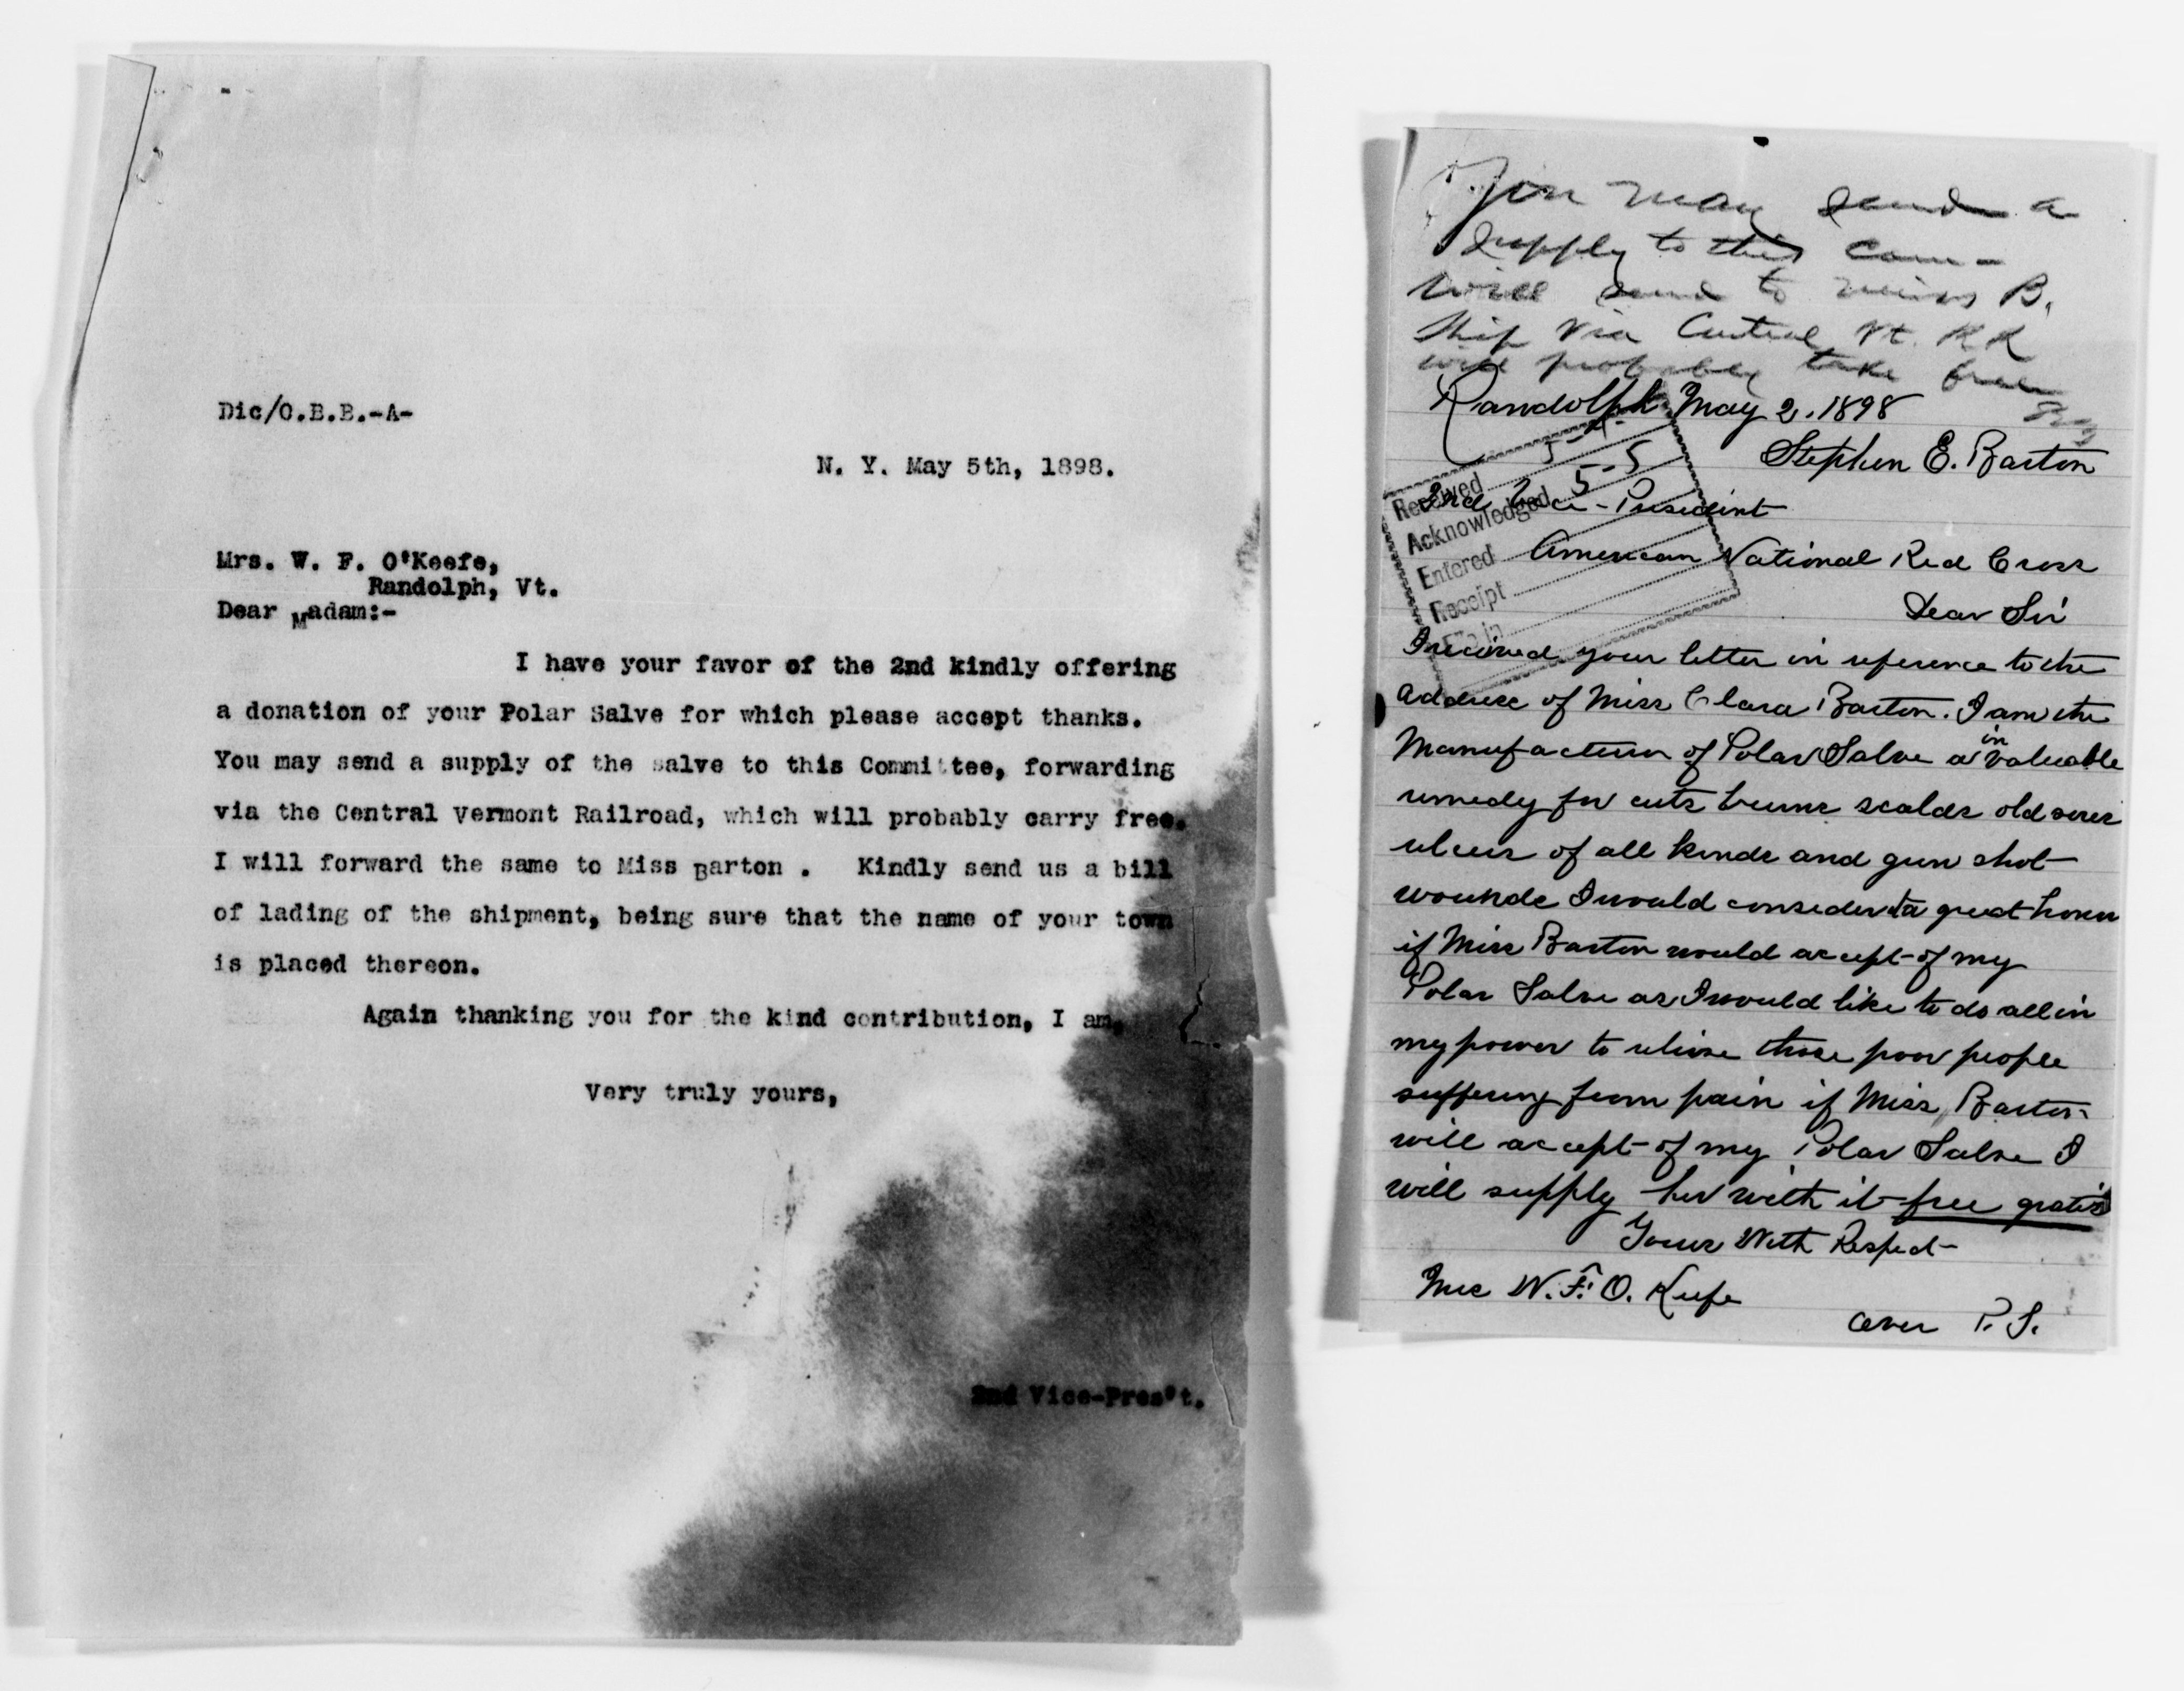 Dic/C.B.B.-A-
N. Y. May 5th, 1898.
Mrs. W. F. O'Keefe,
Randolph, Vt.
Dear Madam:-
I have your favor of the 2nd kindly offering
a donation of your Polar Salve for which please accept thanks.
You may send a supply of the salve to this Committee, forwarding
via the Central Vermont Railroad, which will probably carry free.
I will forward the same to Miss Barton . Kindly send us a bill
of lading of the shipment, being sure that the name of your town
is placed thereon.
Again thanking you for the kind contribution, I am,
Very truly yours,
2nd Vice-Pres't.
You may send a
supply to this Com-
will send to miss B.
Ship via Central Vt. RR
will probably take free
Randolph May 2, 1898
Stephen E. Barton
2nd Vice-President
American National Red Cross
Dear Sir
I recived your letter in reference to the
address of Miss Clara Barton. I am the
Manufacturer of Polar Salve a in valuable
remedy for cuts burns scalds old sores
ulcers of all kinds and gun shot
wounds I would consider it a great honor
if Miss Barton would accept of my
Polar Salve as I would like to do all in
my power to relieve those poor people
suffering from pain if Miss Barton
will accept of my Polar Salve I
will supply her with it free gratis
Yours With Respect
Mrs W. F. O. Keefe
over P. S.
Received 5-4
Acknowledged 5-5
Entered
Receipt
File in